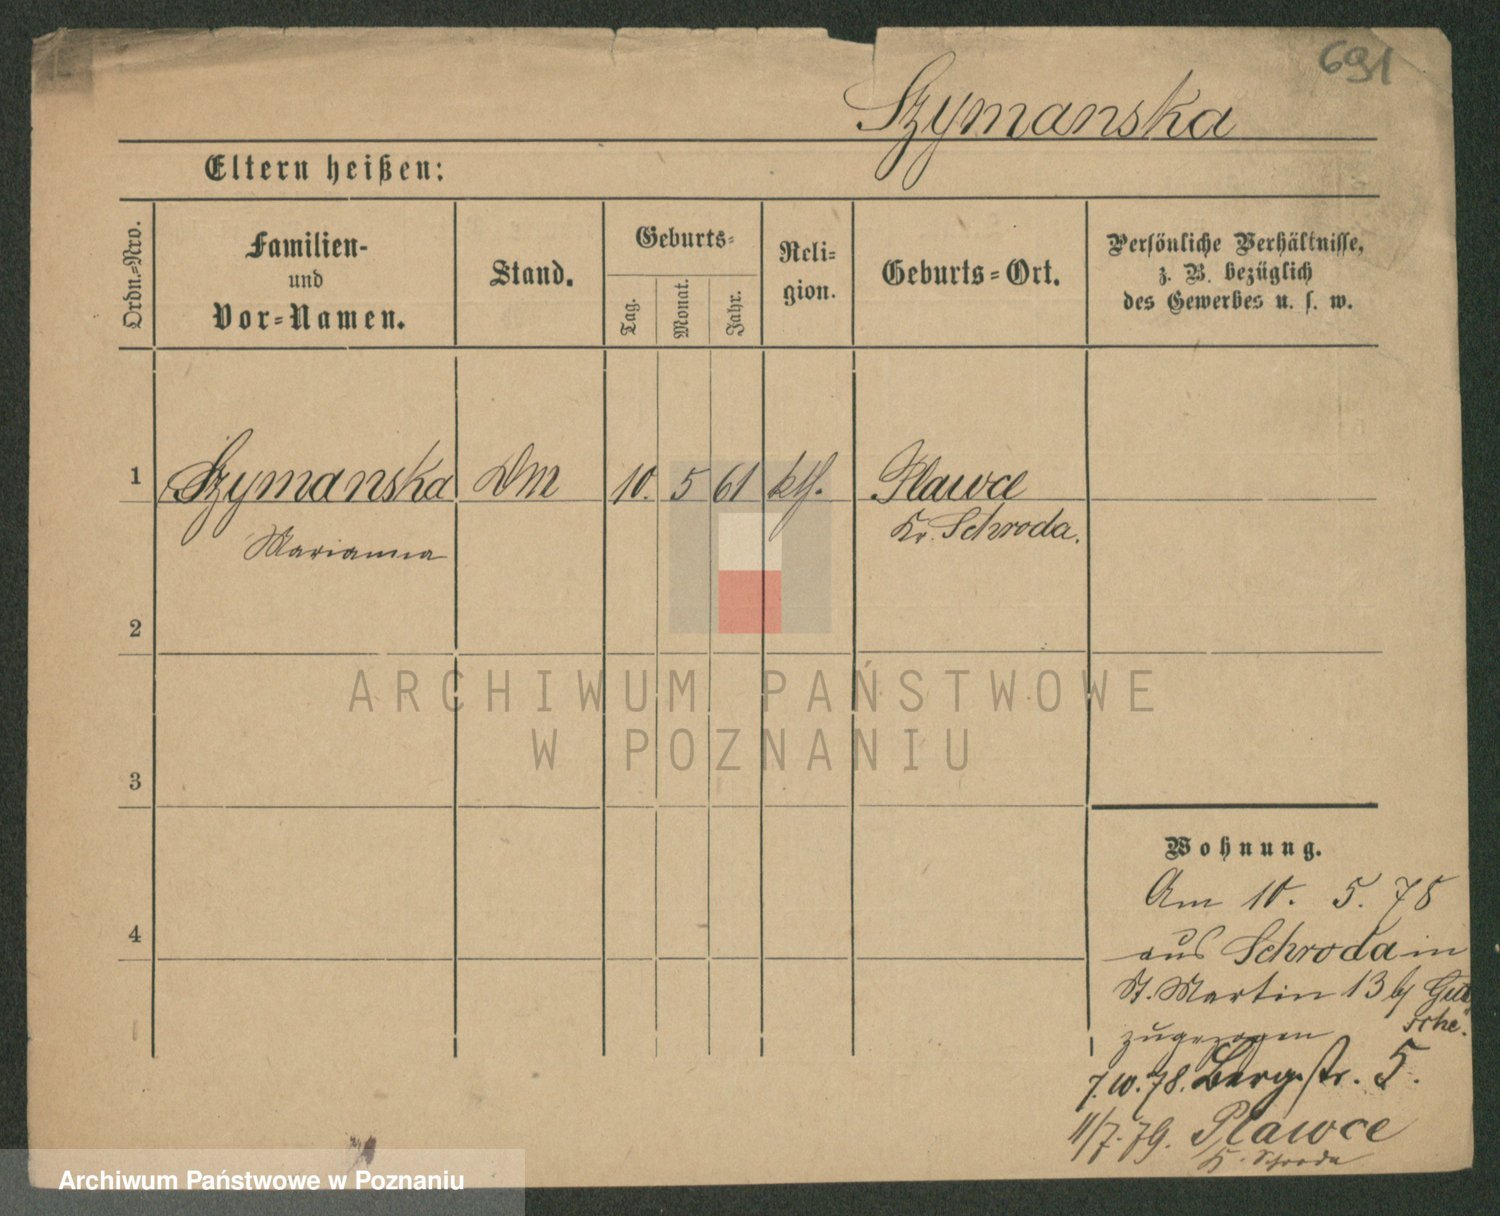 691
Szymanska
Eltern heißen:
Ordn.=Nro.
Familien-
und
Vor=Namen.
Stand.
Geburts=
Tag.
Monat.
Jahr.
Reli=
gion.
Geburts=Ort.
Persönliche Verhältnisse,
z. B. bezüglich
des Gewerbes u. s. w.
1 Szymanska Dm 10. 5 61 kth. Plawce
Marianna Kr. Schroda.
2
ARCHIWUM PAŃSTWOWE
W POZNANIU
3
Wohnung.
Am 10. 5. 78
4
aus Schroda in
St. Martin 13 b/ Gut
sche.
zugezogen
7.10.78. Bergstr. 5.
11/7.79. Plawce
K. Schroda
Archiwum Państwowe w Poznaniu